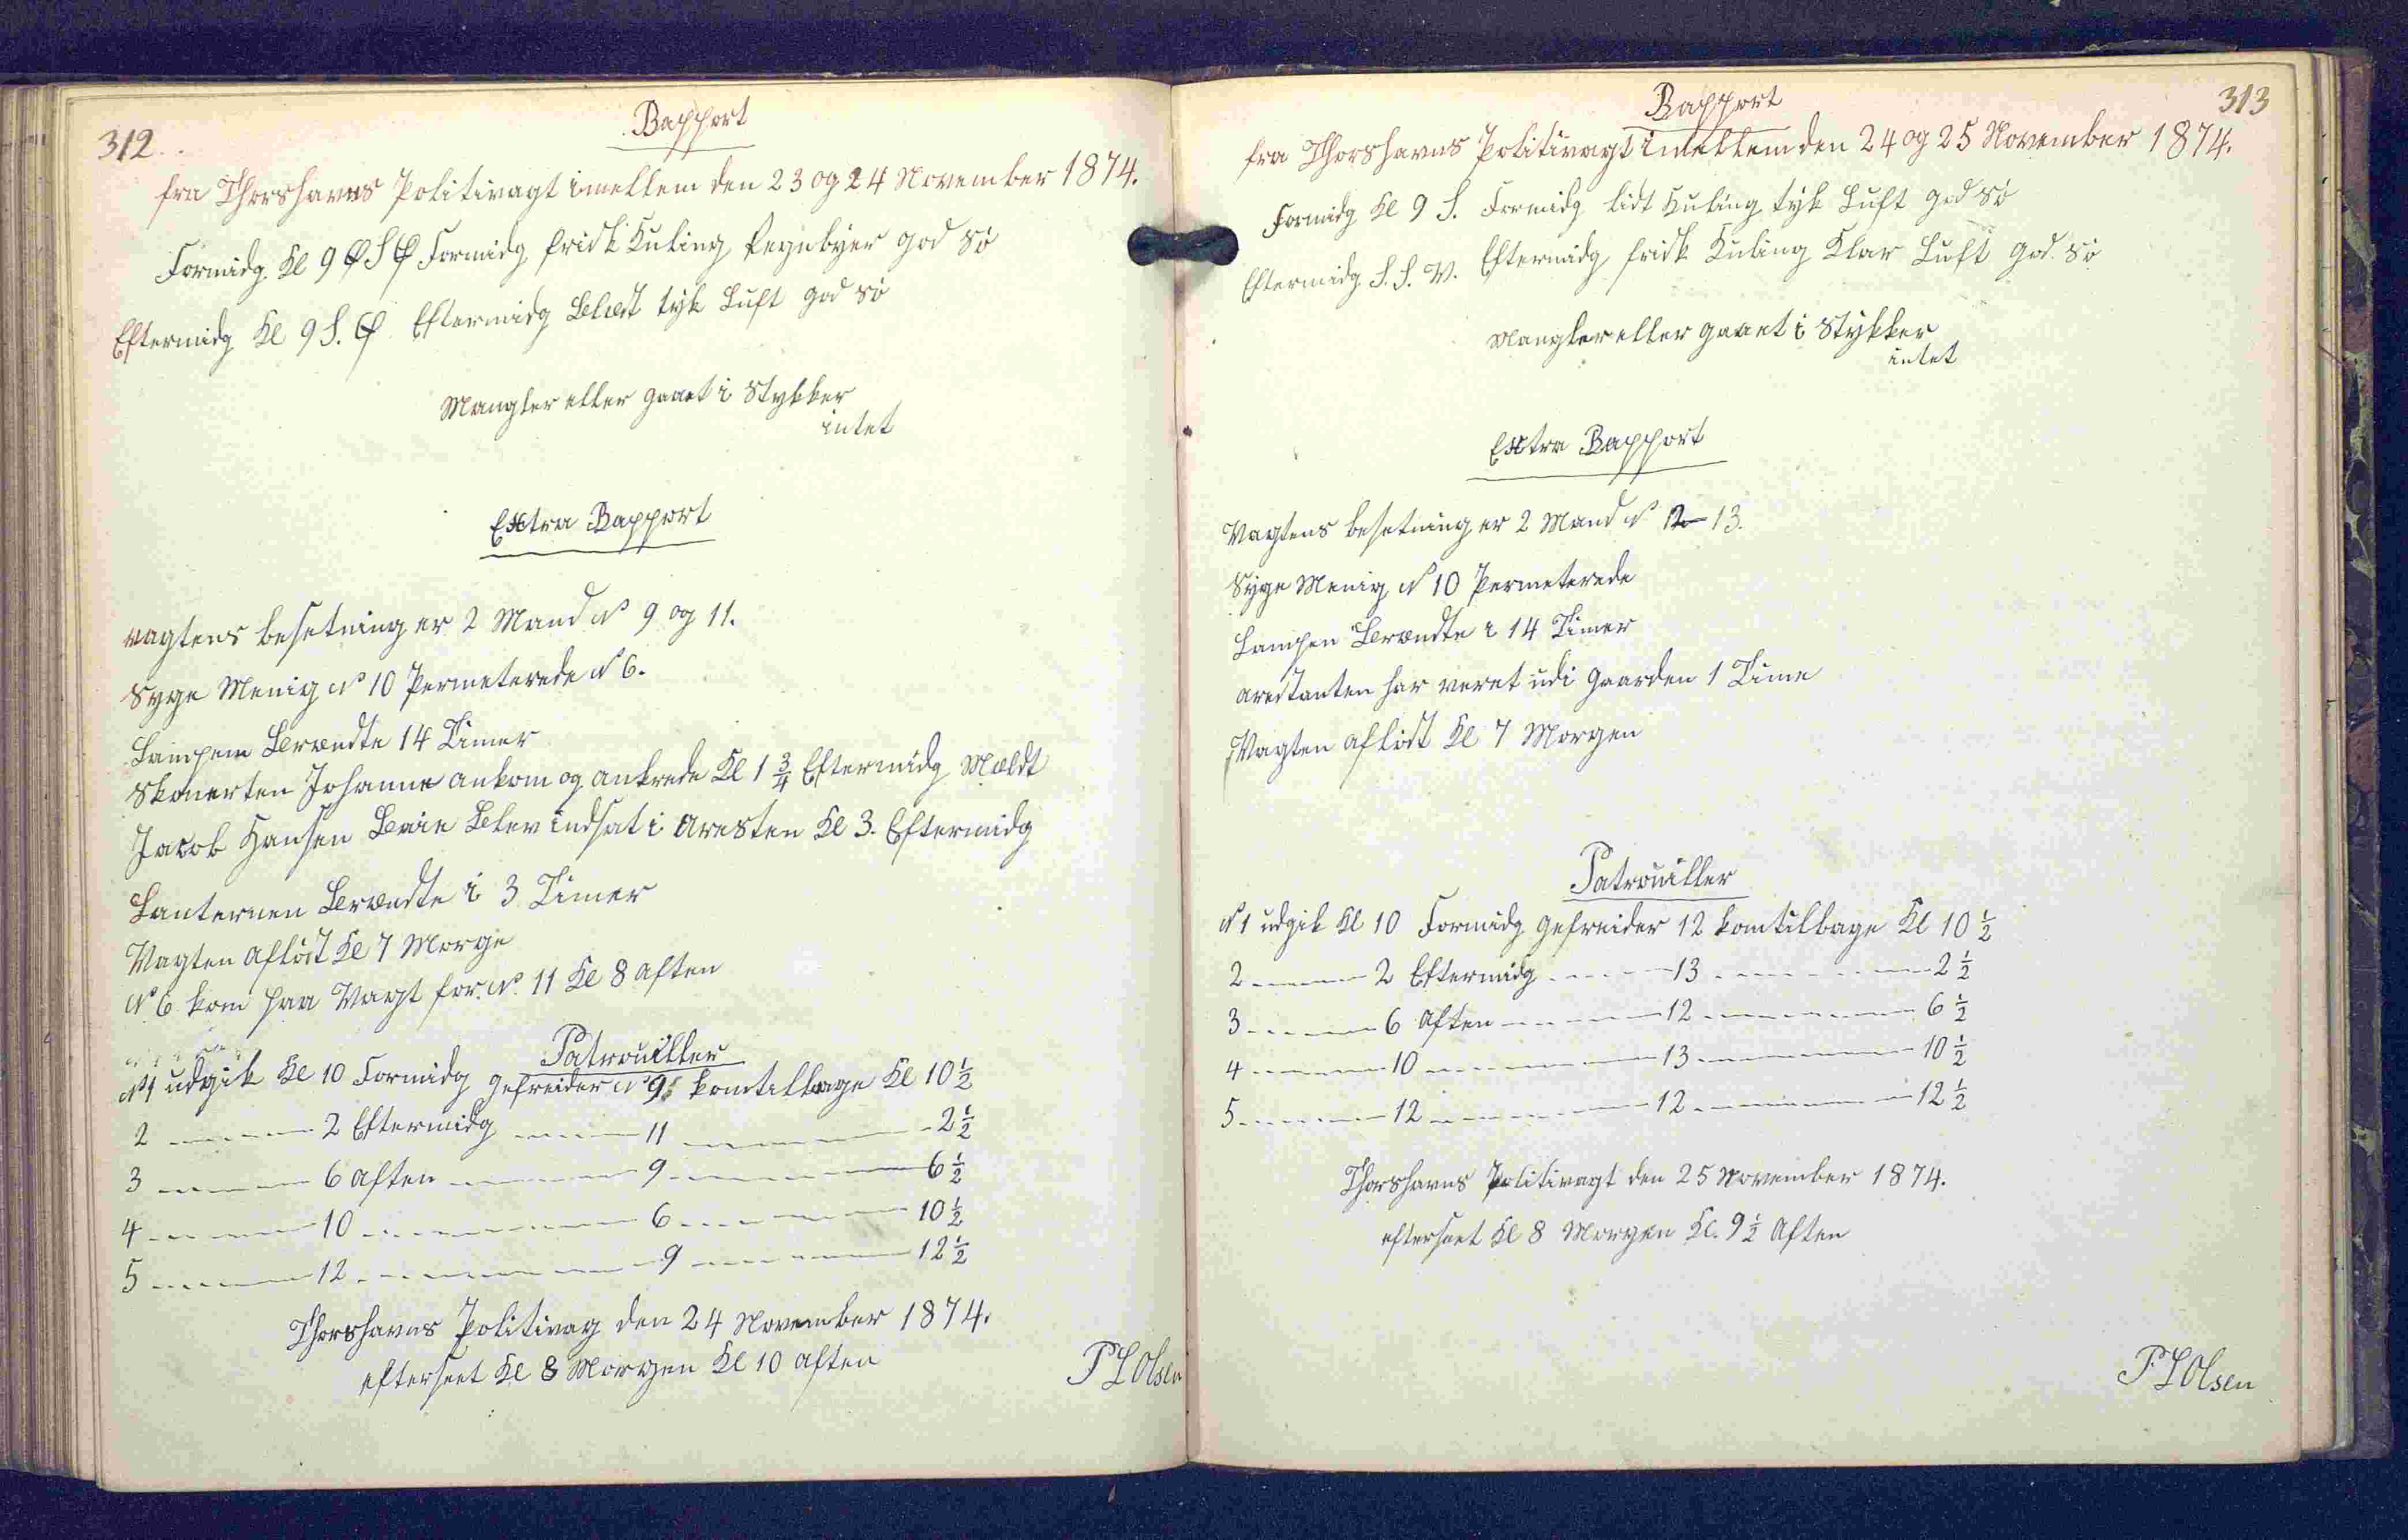 312.
Rapport
fra Thorshavns Politivagt imellem den 23 og 24 November 1874.
Formidg. Kl 9 Ø S Ø Formidg frisk Kuling Regnbyer god Sö
Eftermidg Kl 9 S. Ø Eftermidg Blæst tyk Luft god Sö
Mangler eller gaaet i Stykker
intet
Extra Rapport
Vagtens besetning er 2 Mand No 9 og 11.
Syge Menig No 10 Permeterede No 6.
Lampen Brændte 14 Timer
Skonerten Johanne ankom og ankrede Kl 1 3/4 Eftermidg Mældt
Jacob Hansen Blev indsat i Aresten Kl 3. Eftermidg
Lanternen Brændte i 3 Timer
Vagten aflöst Kl 7 Morge
No 6 kom paa Vagt for No 11 Kl 8 Aften
Patrouiller
No 1 udgik Kl 10 Formidg gefreider No 9 kom tilbage Kl 10 1/2
2 — 2 Eftermidg — 11 — 2 1/2
3 — 6 Aften — 9 — 6 1/2
4 — 10 — 6 — 10 1/2
5 — 12 — 9 — 12 1/2
Thorshavns Politivag den 24 November 1874.
efterseet Kl 8 Morgen Kl 10 Aften
P L Olsen
313
Rapport
fra Thorshavns Politivagt imellem den 24 og 25 November 1874.
Formidg Kl 9 S. Formidg lidt Kuling tyk Luft god Sö
Eftermidg S. S. V. Eftermidg frisk Kuling Klar Luft god Sö
Mangler eller gaaet i Stykker
intet
Extra Rapport
Vagtens besetning er 2 Mand No 12 – 13.
Syge Menig No 10 Permeterede
Lampen Brændte i 14 Timer
arestanten har veret udi Gaarden 1 Time
Vagten aflöst Kl 7 Morgen
Patrouiller
No 1 udgik Kl 10 Formidg gefreider 12 kom tilbage Kl 10 1/2
2 — 2 Eftermidg — 13 — 2 1/2
3 — 6 Aften — 12 — 6 1/2
4 — 10 — 13 — 10 1/2
5 — 12 — 12 — 12 1/2
Thorshavns Politivagt den 25 November 1874.
efterseet Kl 8 Morgen Kl. 9 1/2 Aften
P L Olsen